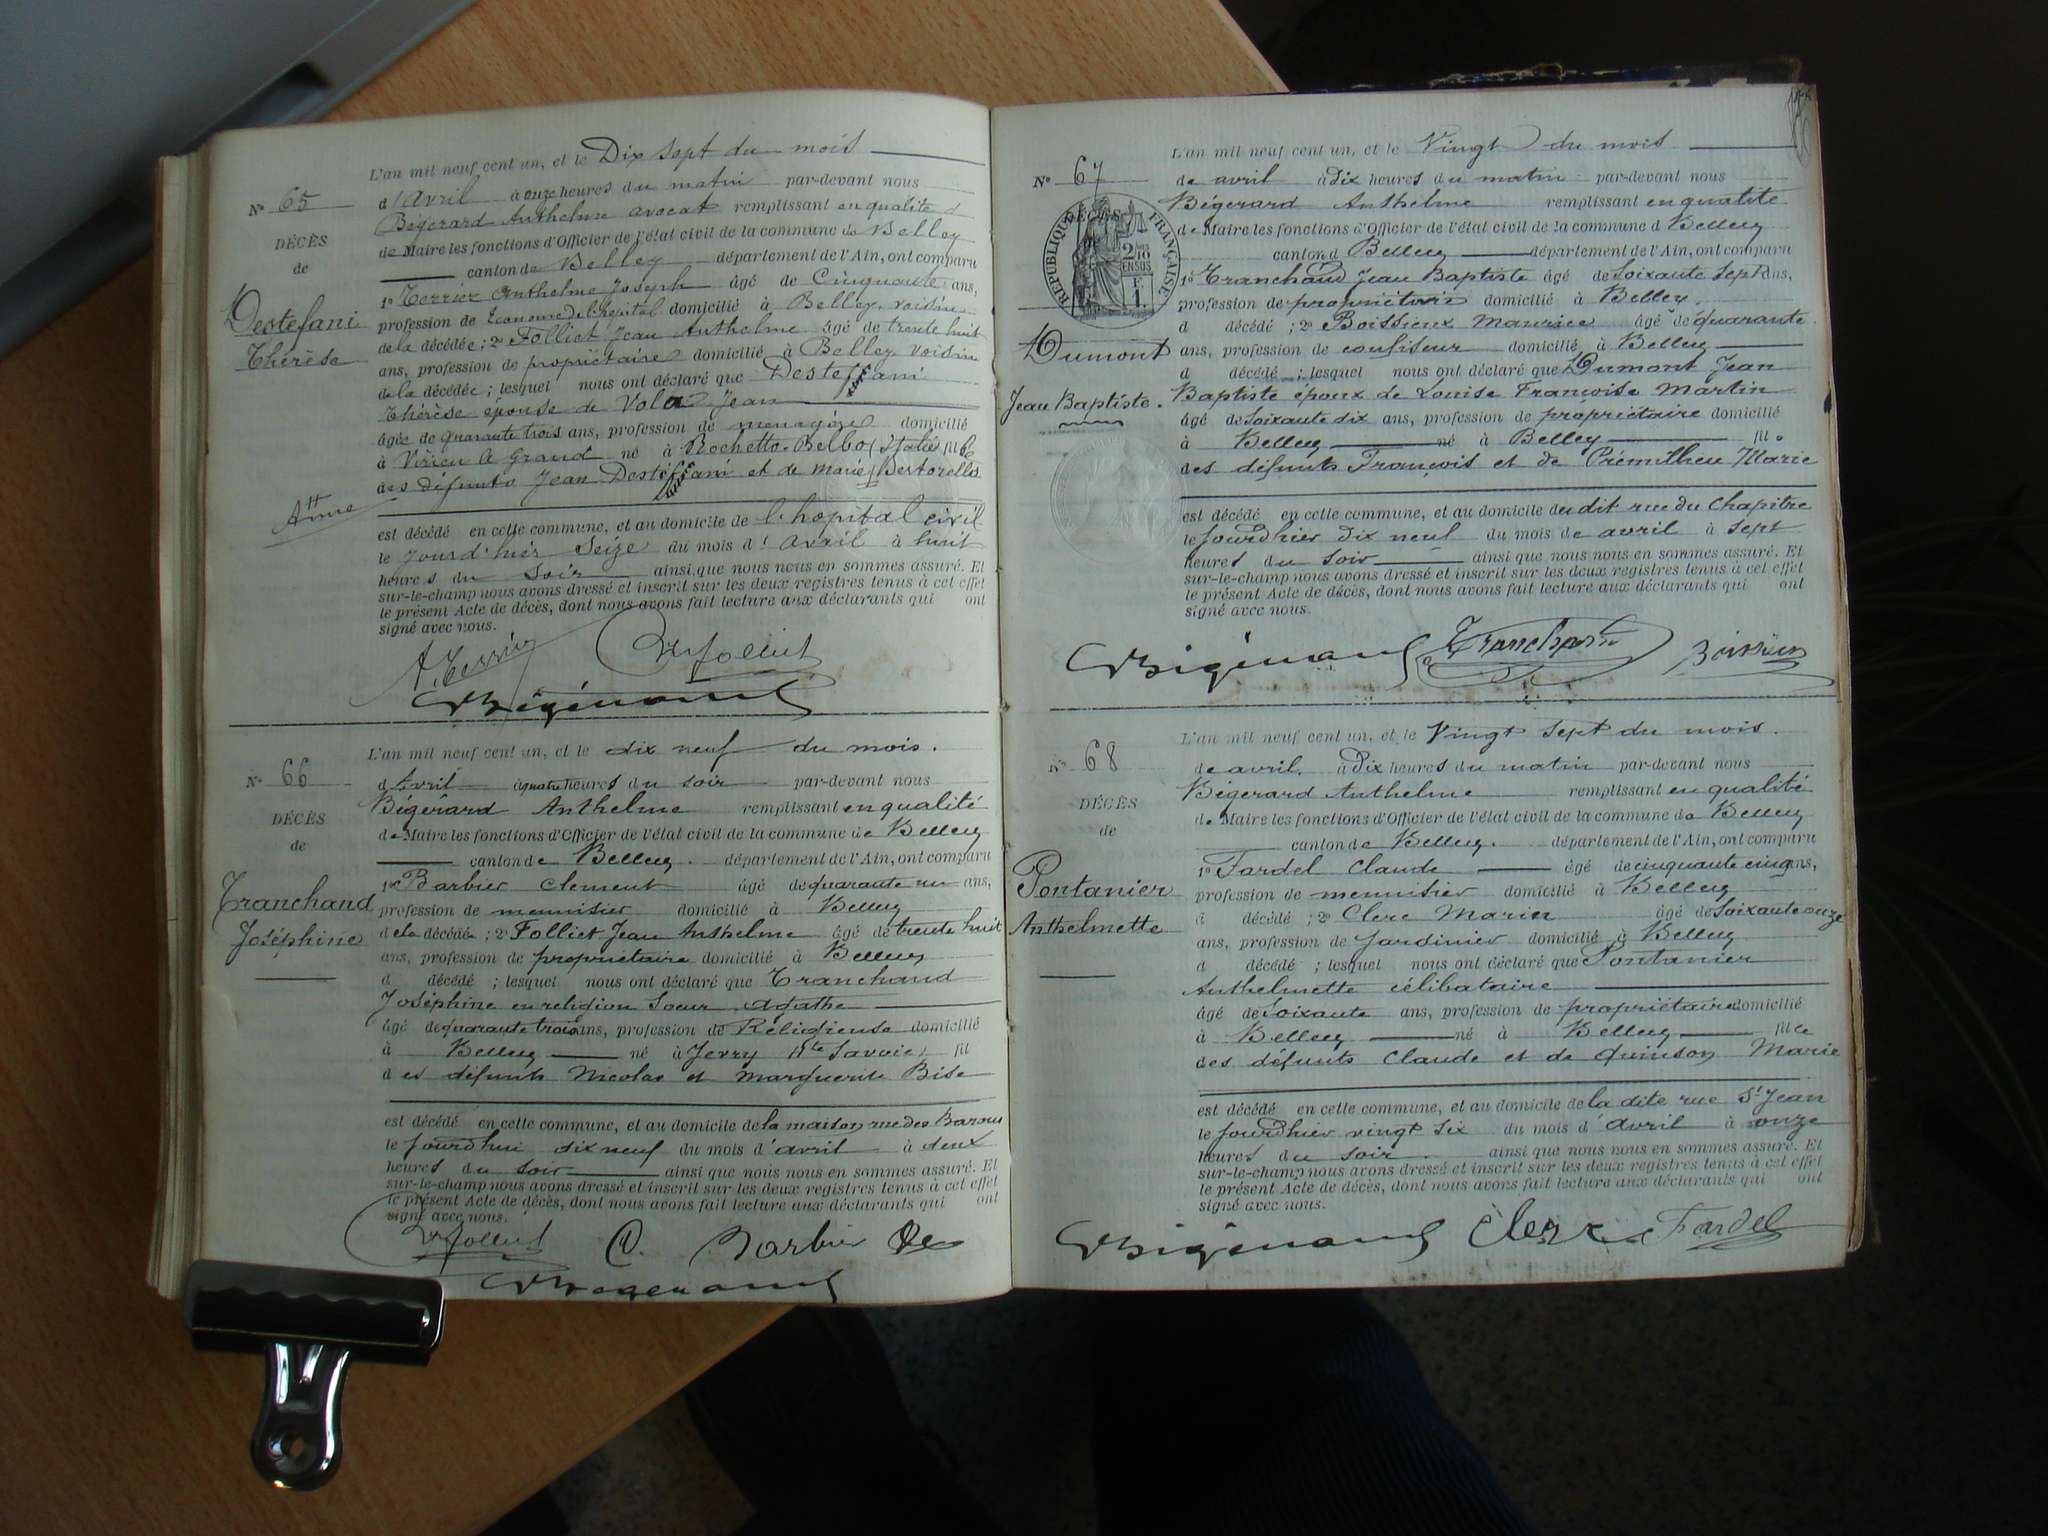 L'an mil neuf cent un, et le Dix sept du mois
Nº 65
d'Avril à onze heures du matin par-devant nous
Bégerard Anthelme avocat remplissant en qualité d
DÉCÈS
de Maire les fonctions d'Officier de l'état civil de la commune de Belley
de
canton de Belley département de l'Ain, ont comparu
1º Terrier Anthelme Joseph âgé de Cinquante ans,
Destefani
Thérèse
profession de Econome de l'hopital domicilié à Belley, voisin
de la décédée ; 2º Folliet Jean Anthelme âgé de trente huit
ans, profession de propriétaire domicilié à Belley voisin
de la décédée ; lesquel nous ont déclaré que Destefani
Thérèse épouse de Vola Jean
âgée de quarante trois ans, profession de menagère domicilié
à Virieu le Grand né à Rochetta-Belbo (Italie) fille
des défunts Jean Destefani et de Marie Bertorello
est décédé en cette commune, et au domicile de l'hopital civil
le jourd'hier Seize du mois d'Avril à huit
heures du Soir ainsi que nous nous en sommes assuré. Et
sur-le-champ nous avons dressé et inscrit sur les deux registres tenus à cet effet
le présent Acte de décès, dont nous avons fait lecture aux déclarants qui ont
signé avec nous.
A. Terrier Folliet
Bégérard
L'an mil neuf cent un, et le dix neuf du mois.
Nº 66
d'Avril à quatre heures du soir par-devant nous
Bégérard Anthelme remplissant en qualité
DÉCÈS
de Maire les fonctions d'Officier de l'état civil de la commune de Belley
de
canton de Belley. département de l'Ain, ont comparu
1º Barbier Clement âgé de quarante un ans,
Tranchand
Joséphine
profession de menuisier domicilié à Belley
de la décédée ; 2º Folliet Jean Anthelme âgé de trente huit
ans, profession de propriétaire domicilié à Belley
d décédé ; lesquel nous ont déclaré que Tranchand
Joséphine en religion Soeur Agathe
âgé de quarante trois ans, profession de Réligieuse domicilié
à Belley né à (Hte Savoie) fil
des défunts Nicolas et Marguerite Bise
est décédé en cette commune, et au domicile de la maison rue des Barons
le jourdhui dix neuf du mois d'avril à deux
heures du soir ainsi que nous nous en sommes assuré. Et
sur-le-champ nous avons dressé et inscrit sur les deux registres tenus à cet effet
le présent Acte de décès, dont nous avons fait lecture aux déclarants qui ont
signé avec nous.
Folliet C. Barbier
Bégérard
L'an mil neuf cent un, et le Vingt du mois
Nº 67
de avril à Dix heures du matin par-devant nous
Bégerard Anthelme remplissant en qualité
DÉCÈS
RÉPUBLIQUE FRANÇAISE
2/10 EN SUS
F. 1.
de Maire les fonctions d'Officier de l'état civil de la commune d Belley
canton d Belley département de l'Ain, ont comparu
1º Tranchand Jean Baptiste âgé de Soixante Sept ans,
profession de propriétaire domicilié à Belley.
d décédé ; 2º Boissieux Maurice âgé de quarante
Dumont
Jean Baptiste.
ans, profession de confiseur domicilié à Belley
d décédé ; lesquel nous ont déclaré que Dumont Jean
Baptiste époux de Louise Françoise Martin
âgé de Soixante dix ans, profession de propriétaire domicilié
à Belley né à Belley fils
des défunts François et de Prémilheu Marie
est décédé en cette commune, et au domicile du dit rue du Chapitre
le jourdhier dix neuf du mois de avril à sept
heures du soir ainsi que nous nous en sommes assuré. Et
sur-le-champ nous avons dressé et inscrit sur les deux registres tenus à cet effet
le présent Acte de décès, dont nous avons fait lecture aux déclarants qui ont
signé avec nous.
Bégérard Tranchand Boissieux
L'an mil neuf cent un, et le Vingt Sept du mois.
Nº 68
de avril. à Dix heures du matin par-devant nous
Bégerard Anthelme remplissant en qualité
DÉCÈS
de Maire les fonctions d'Officier de l'état civil de la commune de Belley
de
canton de Belley. département de l'Ain, ont comparu
1º Fardel Claude âgé de cinquante cinq ans,
Pontanier
Anthelmette
profession de menuisier domicilié à Belley
d décédé ; 2º Clerc Marin âgé de Soixante onze
ans, profession de Jardinier domicilié à Belley
d décédé ; lesquel nous ont déclaré que Pontanier
Anthelmette célibataire
âgé de Soixante ans, profession de propriétaire domicilié
à Belley né à Belley fille
des défunts Claude et de Quinson Marie
est décédé en cette commune, et au domicile de la dite rue St Jean
le jourdhier vingt six du mois d'avril à onze
heures du soir. ainsi que nous nous en sommes assuré. Et
sur-le-champ nous avons dressé et inscrit sur les deux registres tenus à cet effet
le présent Acte de décès, dont nous avons fait lecture aux déclarants qui ont
signé avec nous.
Bégérard Clerc Fardel